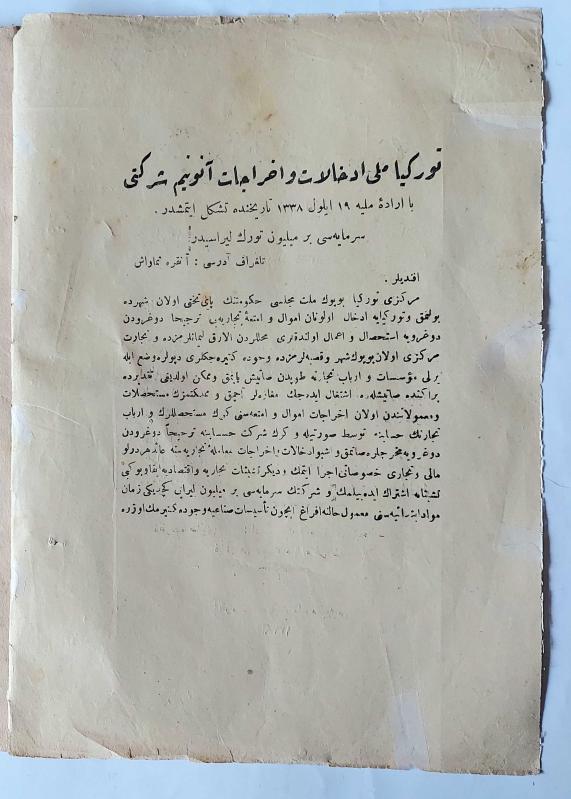 توركيا ملى ادخالات و اخراجات آنونيم شركتى
با ارادۀ مليه ١٩ ايلول ١٣٣٨ تاريخنده تشكل ايتمشدر.
سرمايه‌سى بر ميليون تورك ليراسيدر
تلغراف آدرسى : آنقره
افنديلر .
مركزى توركيا بويوك ملت مجلسى حكومتنك پاى تختى اولان شهرده
بولنمق و توركيايه ادخال اولونان اموال و امتعۀ تجاريه‌يى ترجيحا دوغرودن
دوغرويه استحصال و اعمال اولندقلرى محللردن آلارق ليمانلرمزده و تجارت
مركزى اولان بويوك شهر و قصبه‌لرمزده وجوده كتيره‌جكلرى دپولره وضع ايله
يرلى مؤسسات و ارباب تجارته طوپدن صاتيش ياپمق و ممكن اولديغى تقديرده
پراكنده صاتيشله ده اشتغال ايده‌جك مغازه‌لر آچمق و مملكتمزك مستحصلات
و معمولاتندن اولان اخراجات اموال و امتعه‌سنى كرك مستحصللرك و ارباب
تجارتك حسابنه توسط صورتيله و كرك شركت حسابنه ترجيحاً دوغرودن
دوغرويه مخرجلره صاتمق و اشبو ادخالات و اخراجات معاملۀ تجاريه‌سنه عائد هر درلو
مالى و تجارى خصوصاتى اجرا ايتمك و ديكر تشبثات تجاريه و اقتصاديه
تشبثاته اشتراك ايده‌بيلمك و شركتك سرمايه‌سى بر ميليون ليرايى كچديكى زمان
مواد ابتدائيه‌سنى معمول حالنه افراغ ايچون تأسيسات صناعيه وجوده كتيرمك اوزره